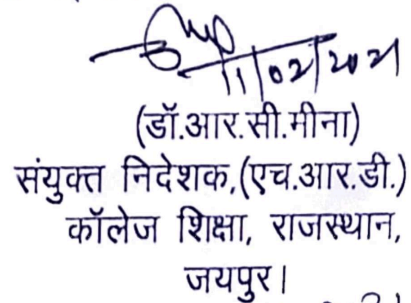 11/02/2021
(डॉ.आर.सी.मीना)
संयुक्त निदेशक,(एच.आर.डी.)
कॉलेज शिक्षा, राजस्थान,
जयपुर।